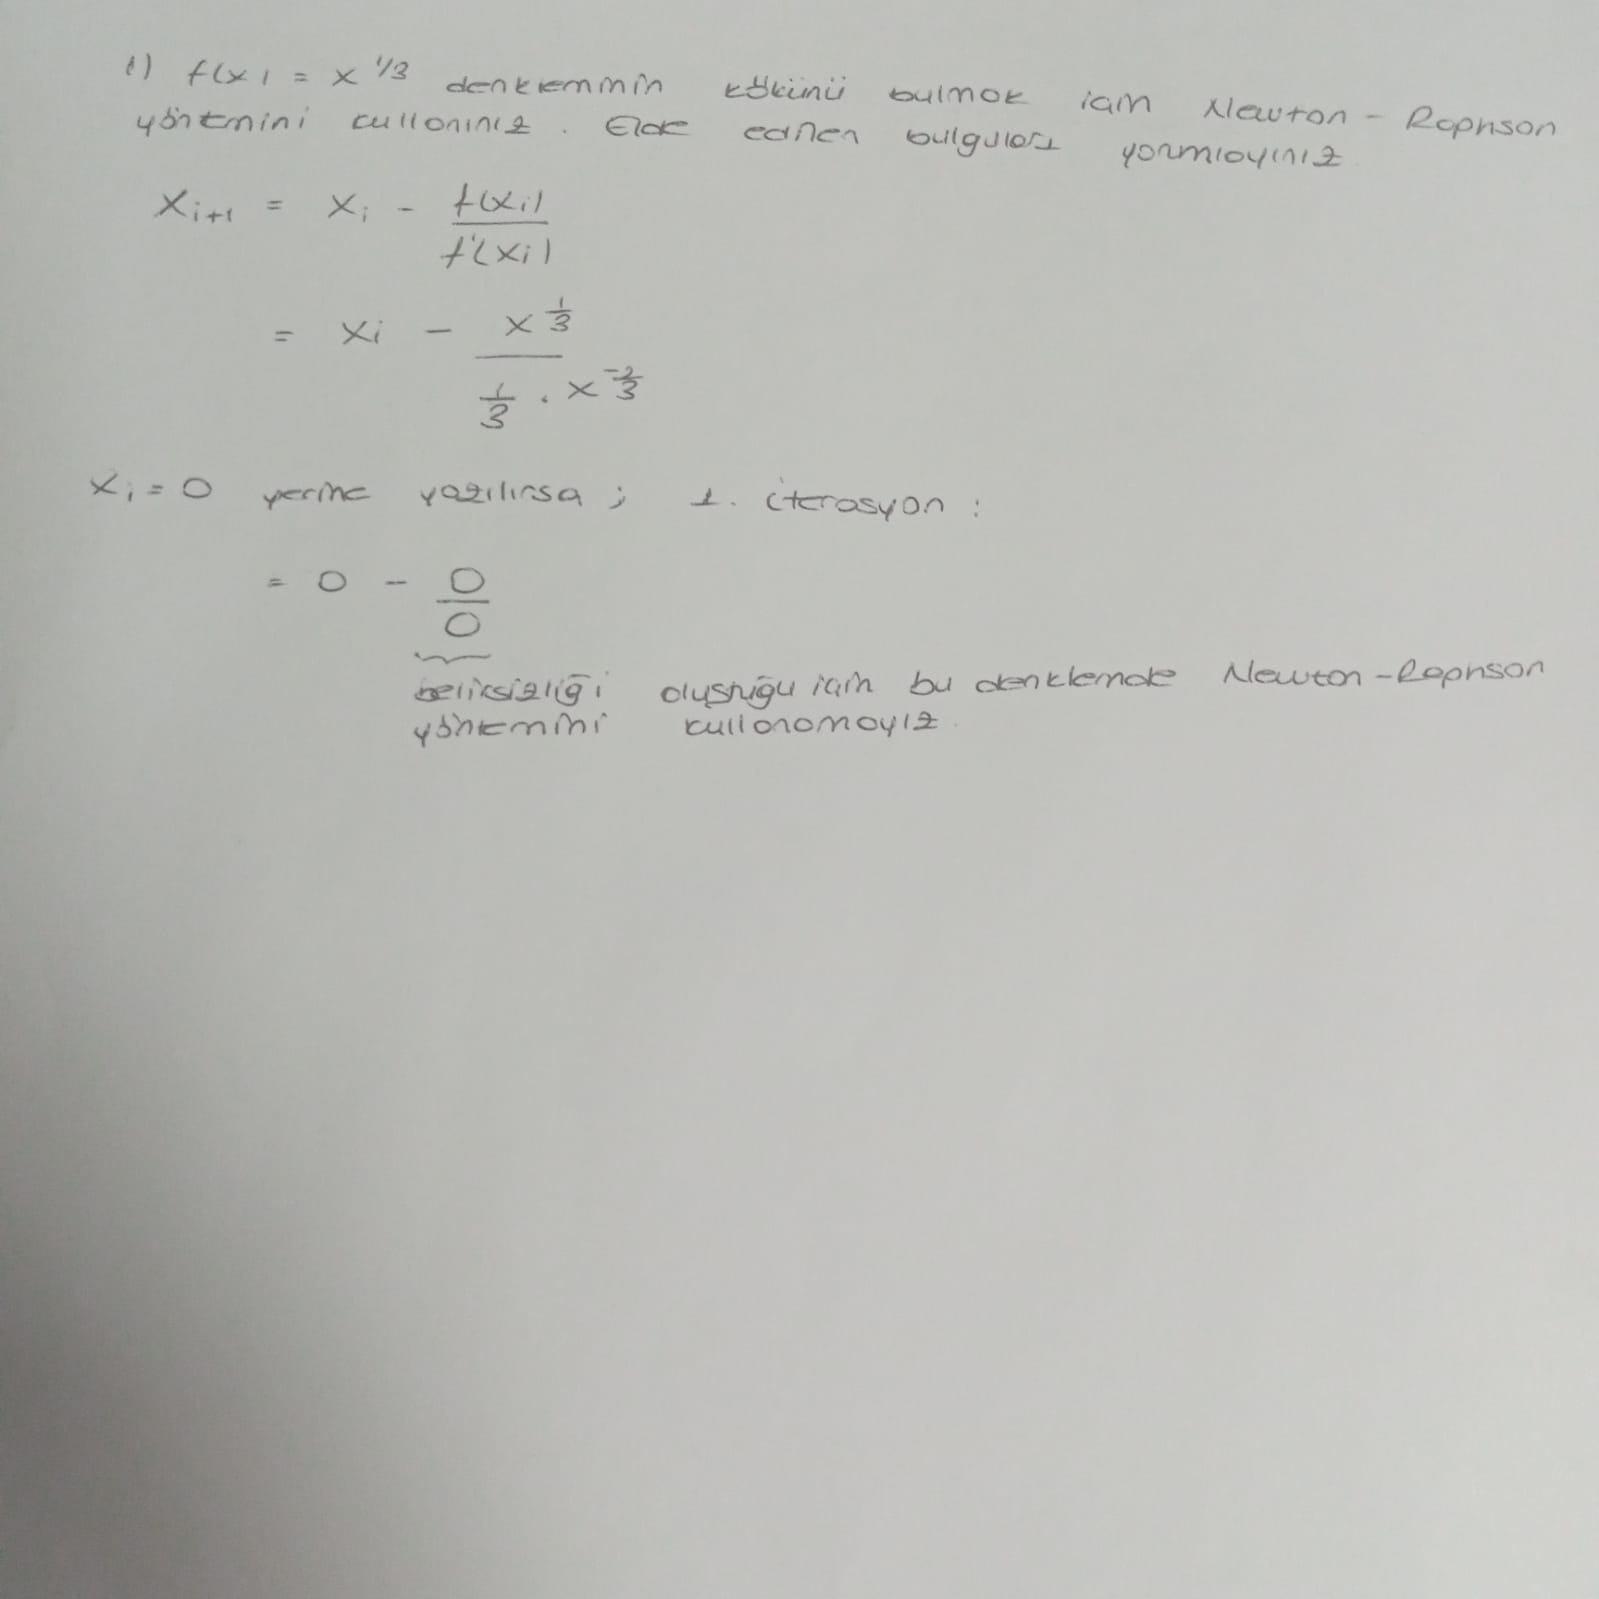 1) f(x) = x^1/3 denkleminin kökünü bulmak için Newton - Raphson
yöntemini kullanınız. Elde edilen bulguları yorumlayınız.
x_{i+1} = x_i - f(x_i) / f'(x_i)
= x_i - x^{1/3} / (1/3 . x^{-2/3})
x_i = 0 yerine yazılırsa ; 1. iterasyon :
= 0 - 0/0
belirsizliği oluştuğu için bu denklemde Newton - Raphson
yöntemini kullanamayız.